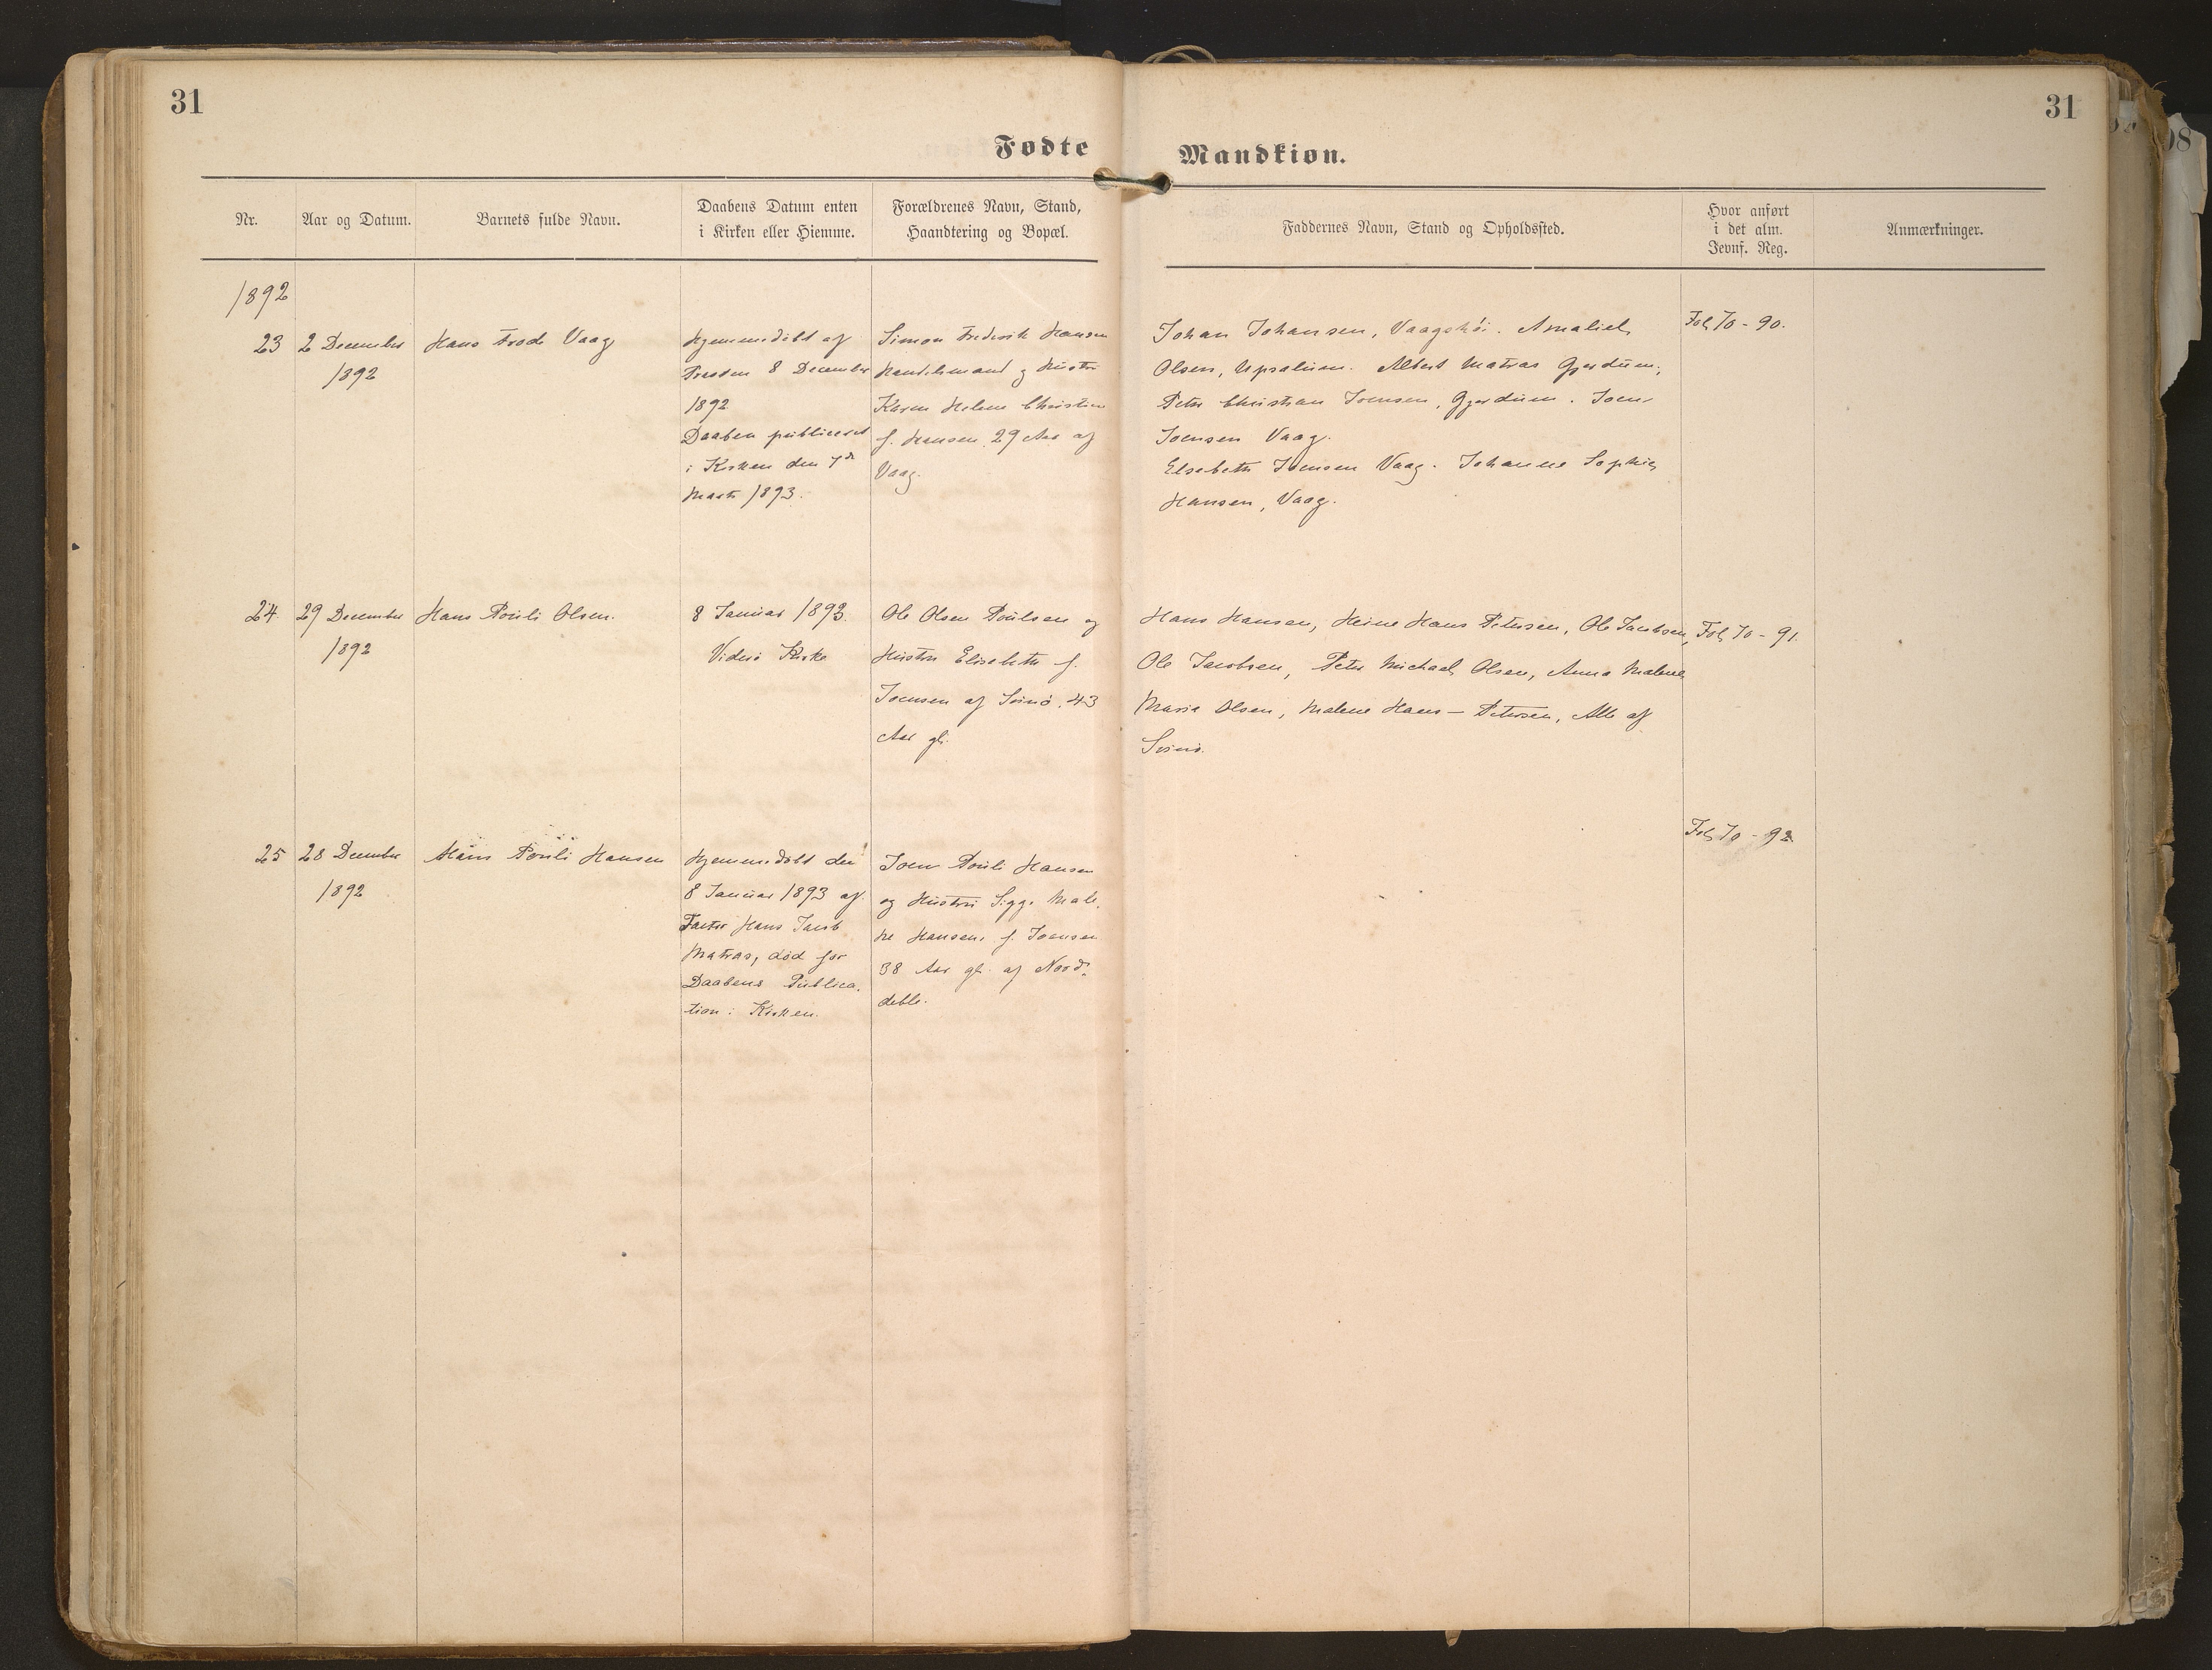 31
31
Fødte
Mandkiøn.
Nr.
Aar og Datum.
Barnets fulde Navn.
Daabens Datum enten
i Kirken eller Hiemme.
Forældrenes Navn, Stand,
Haandtering og Bopæl.
Faddernes Navn, Stand og Opholdssted.
Hvor anført
i det alm.
Jevnf. Reg.
Anmærkninger.
1892
23
2 December
1892
Hans Frode Vaag
Hjemmedöbt af
Præsten 8 December
1892
Daaben publiceret
i Kirken den 7de
Marts 1893.
Simon Frederik Hansen
Handelsmand og Hustru
Karen Helene Christine
f. Hansen 29 Aar af
Vaag.
Johan Johansen, Vaagshöi. Amalie
Olsen, Upsalum. Albert Matras Gjerdum,
Peter Christian Joensen, Gjerdum. Joen
Joensen Vaag.
Elsebeth Joensen Vaag. Johanne Sophie
Hansen, Vaag.
Fol 70 - 90.
24.
29 December
1892
Hans Pouli Olsen.
8 Januar 1893.
Viderö Kirke
Ole Olsen Poulsen og
Hustru Elisabeth f.
Joensen af Svinö. 43
Aar gl.
Hans Hansen, Heine Hans Petersen, Ole Jacobsen,
Ole Jacobsen, Peter Michael Olsen, Anna Malene
Maria Olsen, Malene Hans - Petersen, Alle af
Svinö.
Fol 70 - 91.
25
28 December
1892
Hans Pouli Hansen
Hjemmedöbt den
8 Januar 1893 af
Factor Hans Jacob
Matras, död för
Daabens Publica-
tion i Kirken.
Joen Pouli Hansen
og Hustru Sigge Male-
ne Hansen, f. Joensen
38 Aar gl. af Nord-
deble.
Fol 70 - 92